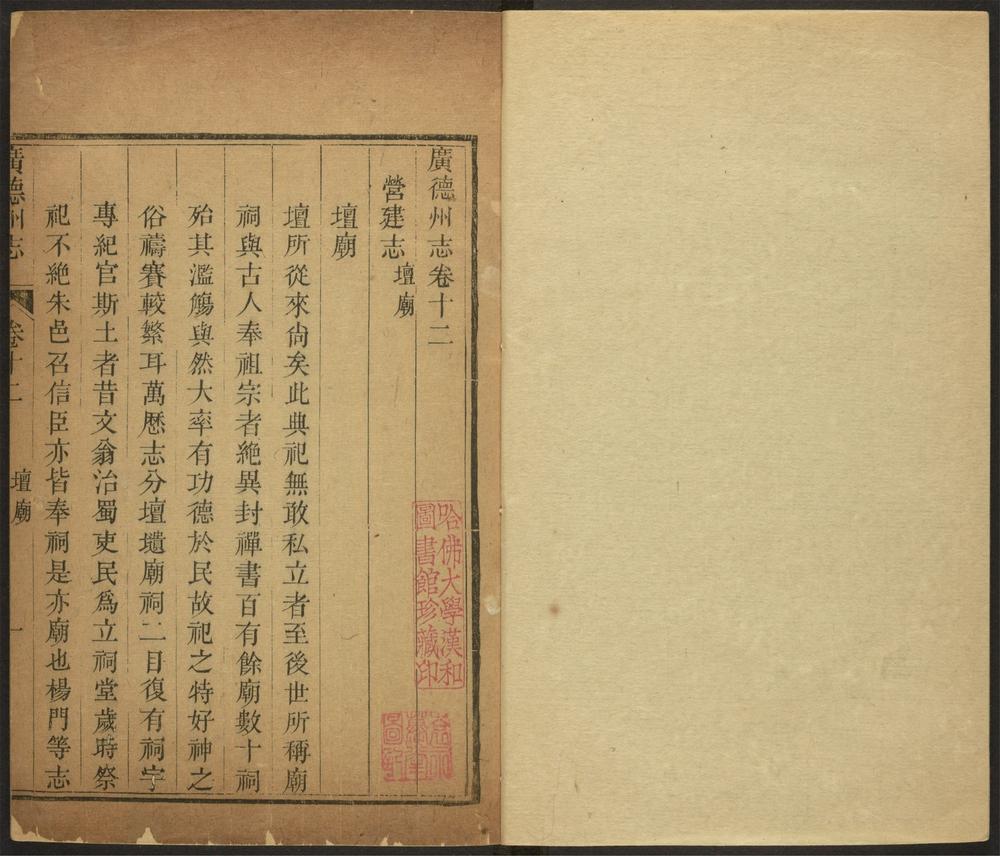 廣德州志卷十二
營建志 壇廟
壇廟
壇所從來尚矣此典祀無敢私立者至後世所稱廟
祠與古人奉祖宗者絶異封禪書百有餘廟數十祠
殆其濫觴與然大率有功德於民故祀之特好神之
俗禱賽較繁耳萬歷志分壇壝廟祠二目復有祠宇
專紀官斯土者昔文翁治蜀吏民爲立祠堂歲時祭
祀不絶朱邑召信臣亦皆奉祠是亦廟也楊門等志
廣德州志 卷十二 壇廟 一
哈佛大學漢和
圖書館珍藏印